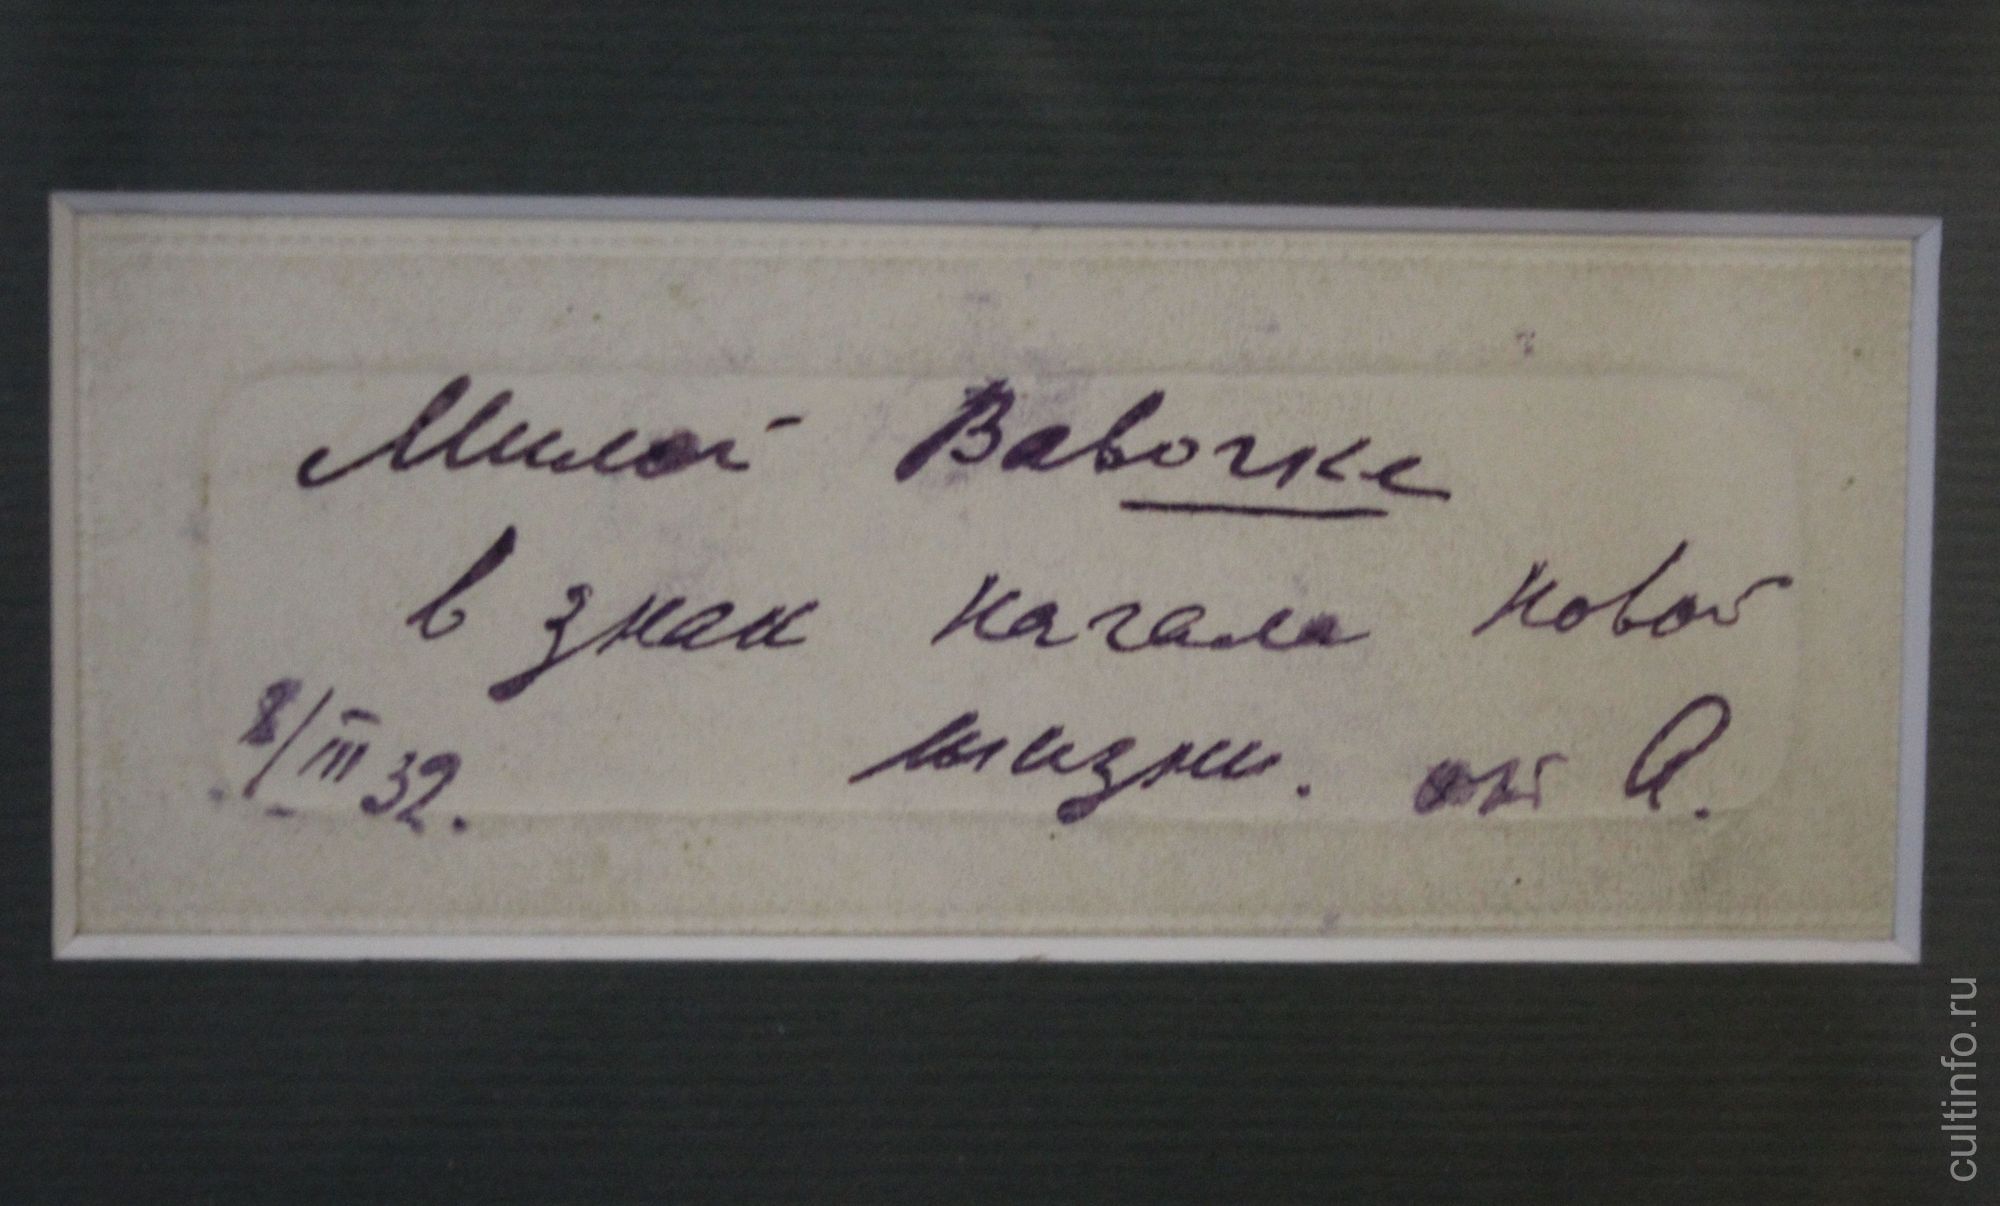 Милой Вавочке
в знак начала новой
жизни. от А.
8/III 32.
cultinfo.ru